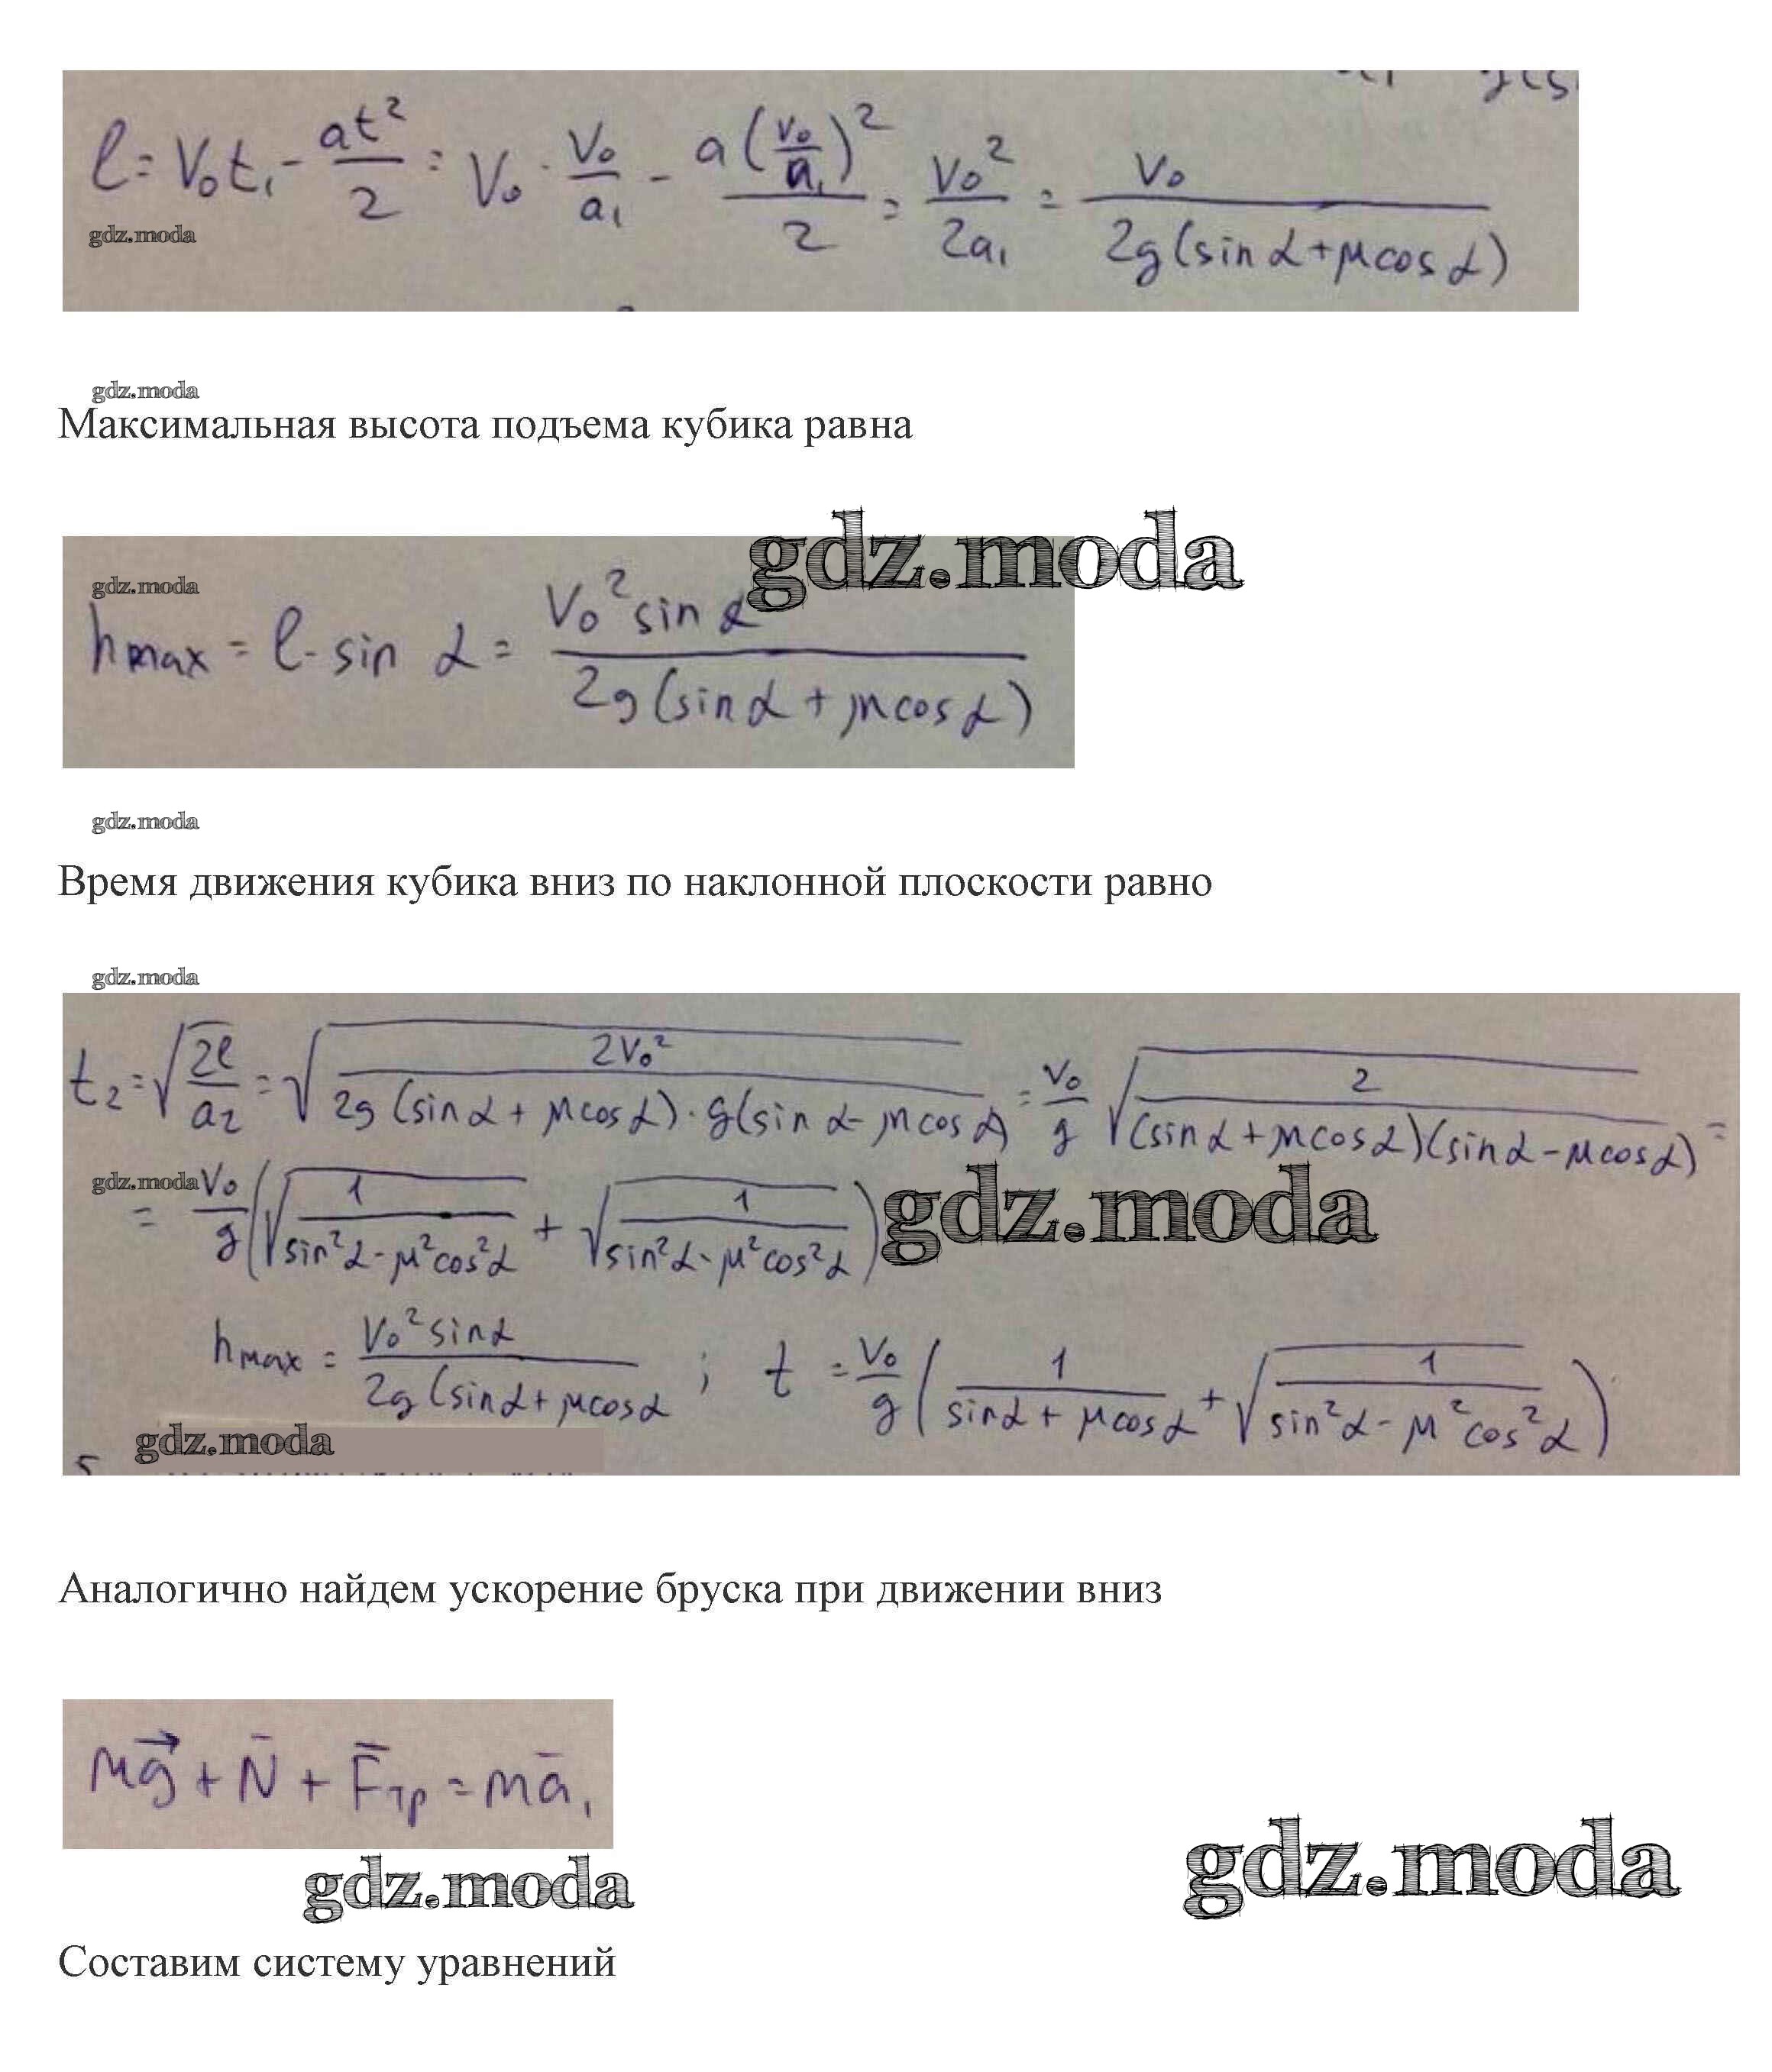 l = V₀t₁ - at²/2 = V₀ · V₀/a₁ - a(V₀/a₁)²/2 = V₀²/2a₁ = V₀/2g(sin α + μcos α)
gdz.moda
gdz.moda
Максимальная высота подъема кубика равна
gdz.moda
gdz.moda
hmax = l · sin α = V₀² sin α/2g(sin α + μcos α)
gdz.moda
Время движения кубика вниз по наклонной плоскости равно
gdz.moda
t₂ = √(2l/a₂) = √(2V₀²/2g(sin α + μcos α) · g(sin α - μcos α)) = V₀/g √(2/(sin α + μcos α)(sin α - μcos α)) =
gdz.moda
= V₀/g (√(1/sin²α - μ²cos²α) + √(1/sin²α - μ²cos²α))
gdz.moda
hmax = V₀² sin α/2g(sin α + μcos α ; t = V₀/g (1/sin α + μcos α + √(1/sin²α - μ²cos²α))
gdz.moda
Аналогично найдем ускорение бруска при движении вниз
mg⃗ + N̄ + F̄тр = mā₁
gdz.moda
gdz.moda
Составим систему уравнений